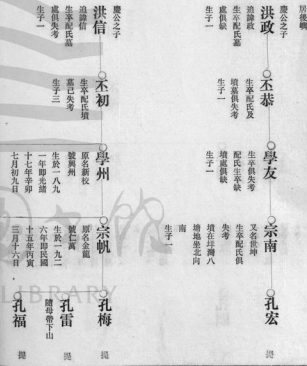 居後嗣
慶公之子
洪政
追諱政
生卒配氏墓
處俱缺
生子一
丕恭
生卒配氏及
墳墓俱失考
生子一
學友
生卒俱失考
配氏生卒缺
墳處俱缺
生子一
宗南
又名世坤
生卒配氏俱
失考
墳在坪灣八
墳地坐北向
南
生子一
孔宏
提
慶公之子
洪信
追諱信
生卒配氏墓
處俱失考
生子一
丕初
生卒配氏墳
墓已失考
生子三
學州
原名新校
號興州
生於一八九
一年即光緒
十七年辛卯
七月初九日
宗帆
原名金龍
號仁萬
生於一九二
六年即民國
十五年丙寅
三月十六日
孔梅
提
孔雷
隨母帶下山
提
孔福
提
LIBRARY